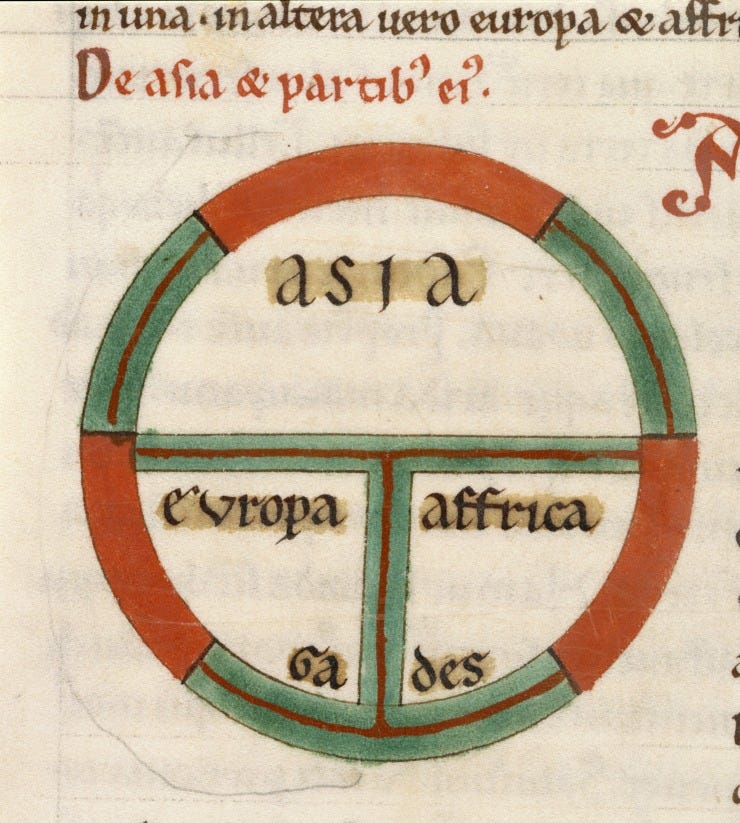 in una · in altera uero europa & affri
De asia & partib⁹ ei⁹.
N
asia
europa affrica
Ga des